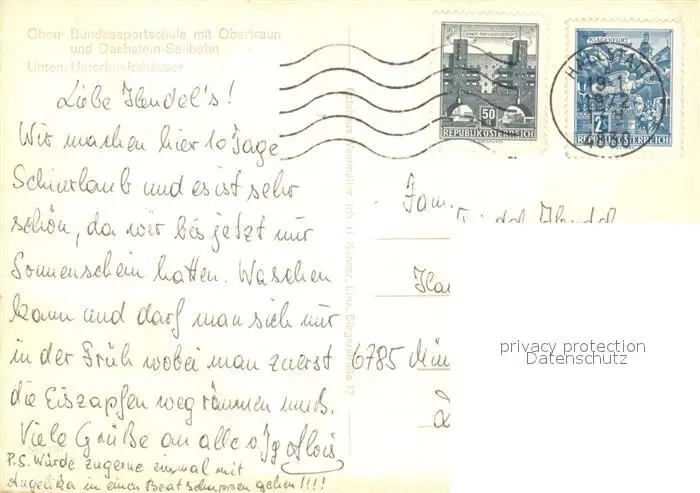 Oben: Bundessportschule mit Obertraun
und Dachstein-Seilbahn
Unten: Unterkunftshäuser
Liebe Hendel's!
Wir machen hier 10 Tage
Schiurlaub und es ist sehr
schön, da wir bis jetzt nur
Sonnenschein hatten. Waschen
kann und darf man sich nur
in der Früh wobei man zuerst
die Eiszapfen wegräumen muß.
Viele Grüße an alle Alois
P.S. Würde zu gerne einmal mit
Angelika in einen Beatschuppen gehen!!!!
50
REPUBLIK ÖSTERREICH
KLAGENFURT
REPUBLIK ÖSTERREICH
Fam.
Hendel
6785 Mün
privacy protection
Datenschutz